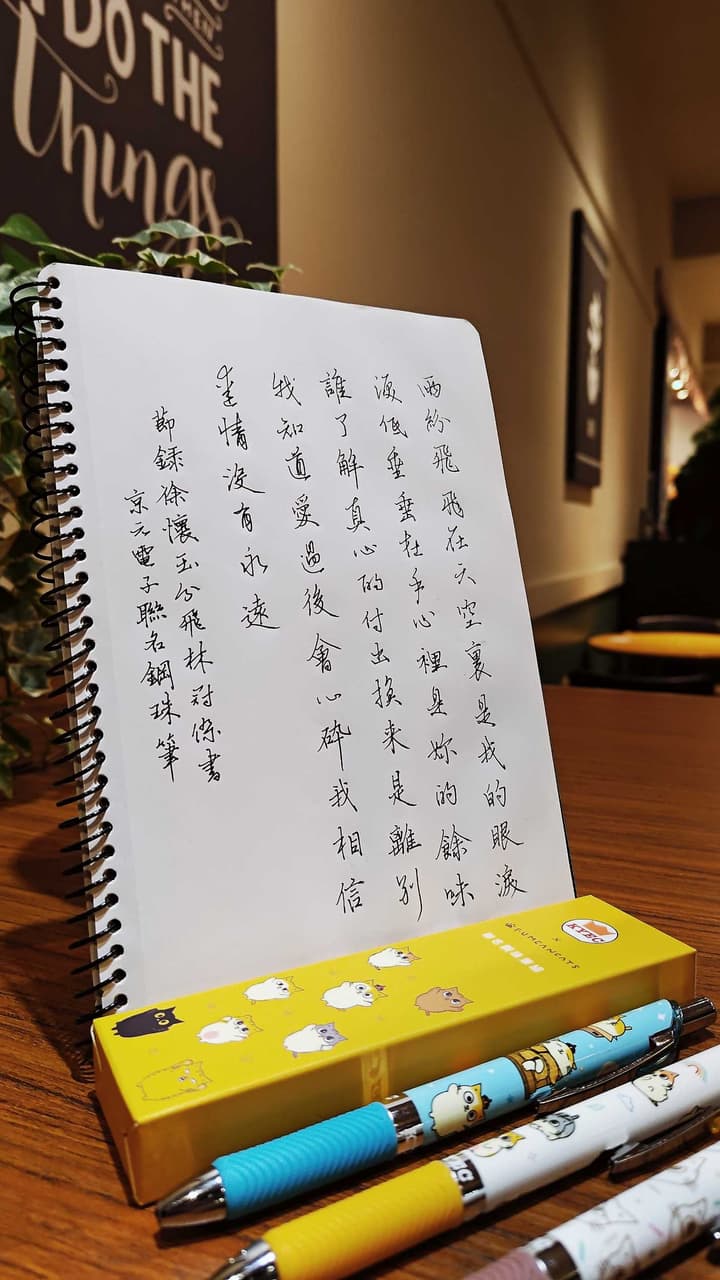 THEN
DO THE
things
雨紛飛飛在天空裏是我的眼淚
淚低垂垂在手心裡是妳的餘味
誰了解真心的付出換来是離別
我知道愛過後會心碎我相信
愛情沒有永遠
節録徐懷玉分飛林冠書
京元電子聯名鋼珠筆
KYEC
×
FUMEANCATS